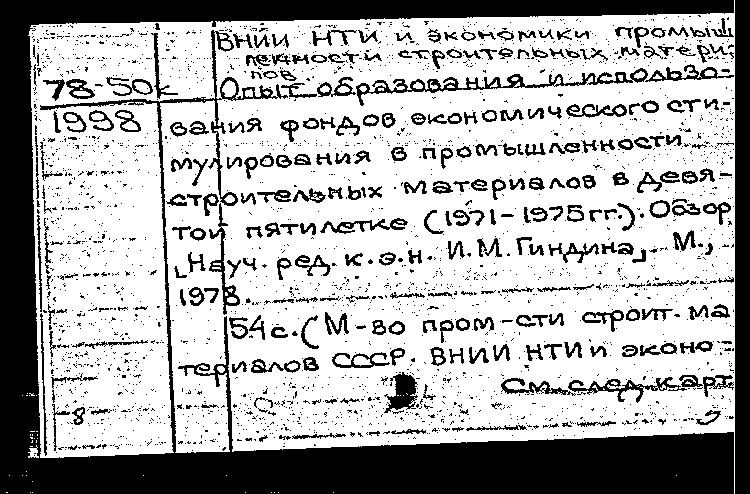 ВНИИ НТИ и экономики промыш
ленности строительных матери
лов
78-50к Опыт образования и использо-
1998 вания фондов экономического сти-
мулирования в промышленности
строительных материалов в девя-
той пятилетке (1971-1975гг.). Обзор
[Науч. ред. к.э.н. И.М. Гиндина]. М.,
1978.
54с. (М-во пром-сти строит. ма
териалов СССР. ВНИИ НТИ и эконо-
См. след. карт
8